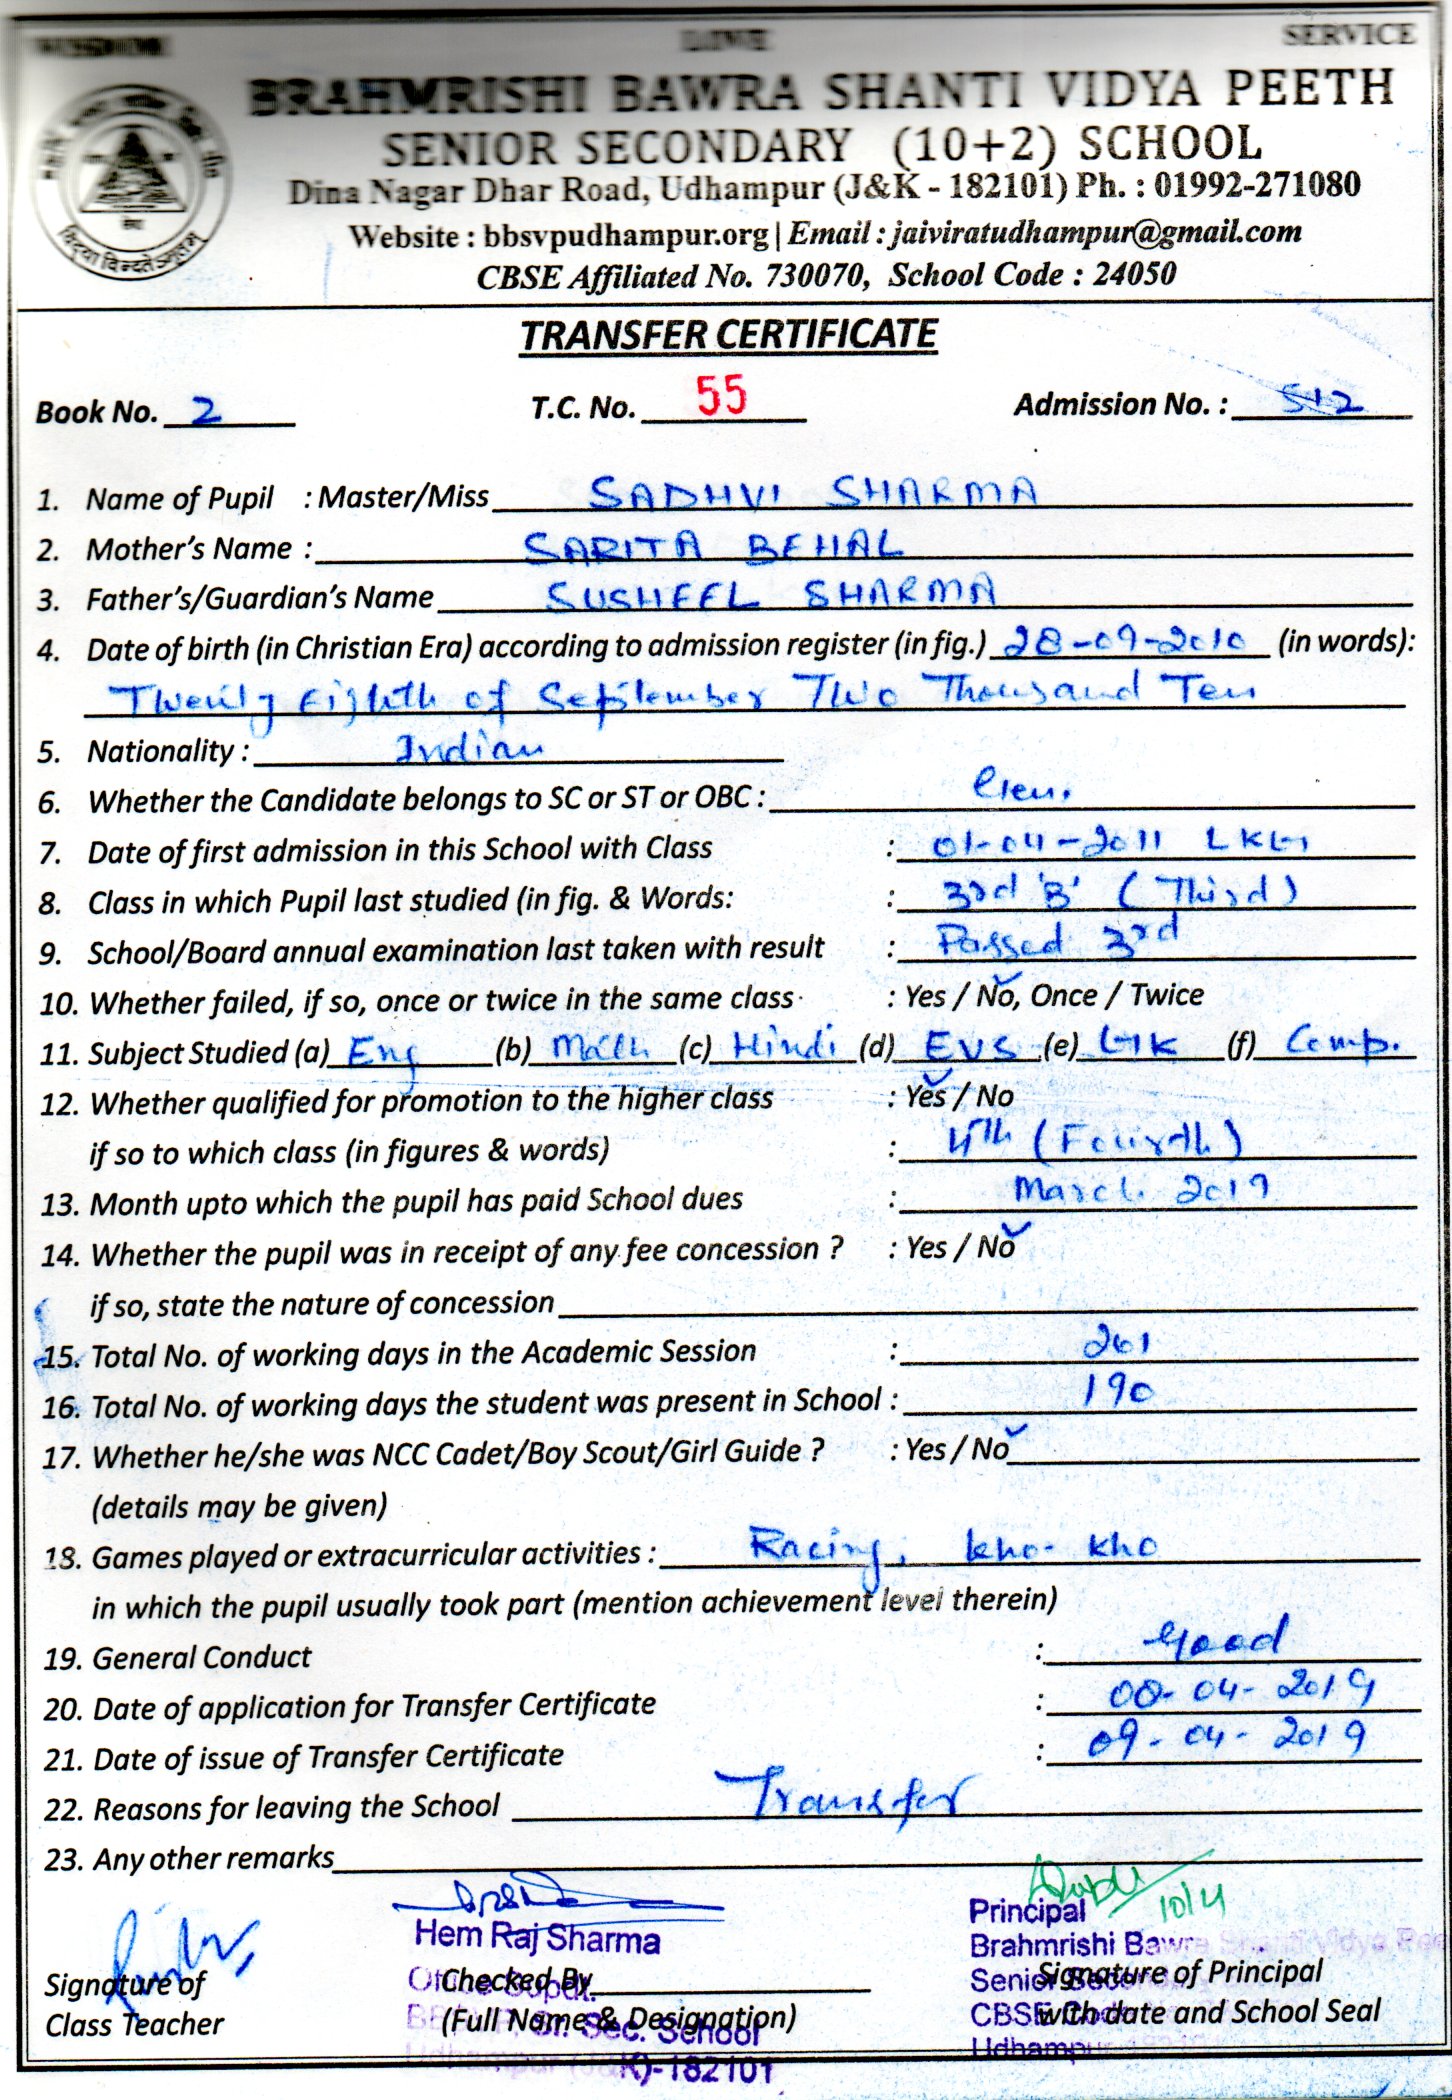 WISDOM LOVE SERVICE
BRAHMRISHI BAWRA SHANTI VIDYA PEETH
SENIOR SECONDARY (10+2) SCHOOL
Dina Nagar Dhar Road, Udhampur (J&K - 182101) Ph. : 01992-271080
Website : bbsvpudhampur.org | Email : jaiviratudhampur@gmail.com
CBSE Affiliated No. 730070, School Code : 24050
TRANSFER CERTIFICATE
Book No. 2 T.C. No. 55 Admission No. : 512
1. Name of Pupil : Master/Miss SADHVI SHARMA
2. Mother's Name : SARITA BEHAL
3. Father's/Guardian's Name SUSHEEL SHARMA
4. Date of birth (in Christian Era) according to admission register (in fig.) 28-09-2010 (in words):
Twenty Eighth of September Two Thousand Ten
5. Nationality : Indian
6. Whether the Candidate belongs to SC or ST or OBC : Gen.
7. Date of first admission in this School with Class : 01-04-2011 LKG
8. Class in which Pupil last studied (in fig. & Words: : 3rd 'B' (Third)
9. School/Board annual examination last taken with result : Passed 3rd
10. Whether failed, if so, once or twice in the same class : Yes / No, Once / Twice
11. Subject Studied (a) Eng (b) Math (c) Hindi (d) EVS (e) GK (f) Comp.
12. Whether qualified for promotion to the higher class : Yes / No
if so to which class (in figures & words) : 4th (Fourth)
13. Month upto which the pupil has paid School dues : March 2019
14. Whether the pupil was in receipt of any fee concession ? : Yes / No
if so, state the nature of concession
15. Total No. of working days in the Academic Session : 261
16. Total No. of working days the student was present in School : 190
17. Whether he/she was NCC Cadet/Boy Scout/Girl Guide ? : Yes / No
(details may be given)
18. Games played or extracurricular activities : Racing, kho-kho
in which the pupil usually took part (mention achievement level therein)
19. General Conduct : Good
20. Date of application for Transfer Certificate : 08-04-2019
21. Date of issue of Transfer Certificate : 09-04-2019
22. Reasons for leaving the School Transfer
23. Any other remarks
10/4
Hem Raj Sharma Principal
Brahmrishi Bawra Shanti Vidya Pee
Signature of Checked By Signature of Principal
Office Supdt. Senior
Class Teacher (Full Name & Designation) with date and School Seal
Sr. Sec. School CBSE Code
Udhampur (J&K)-182101 Udhampur